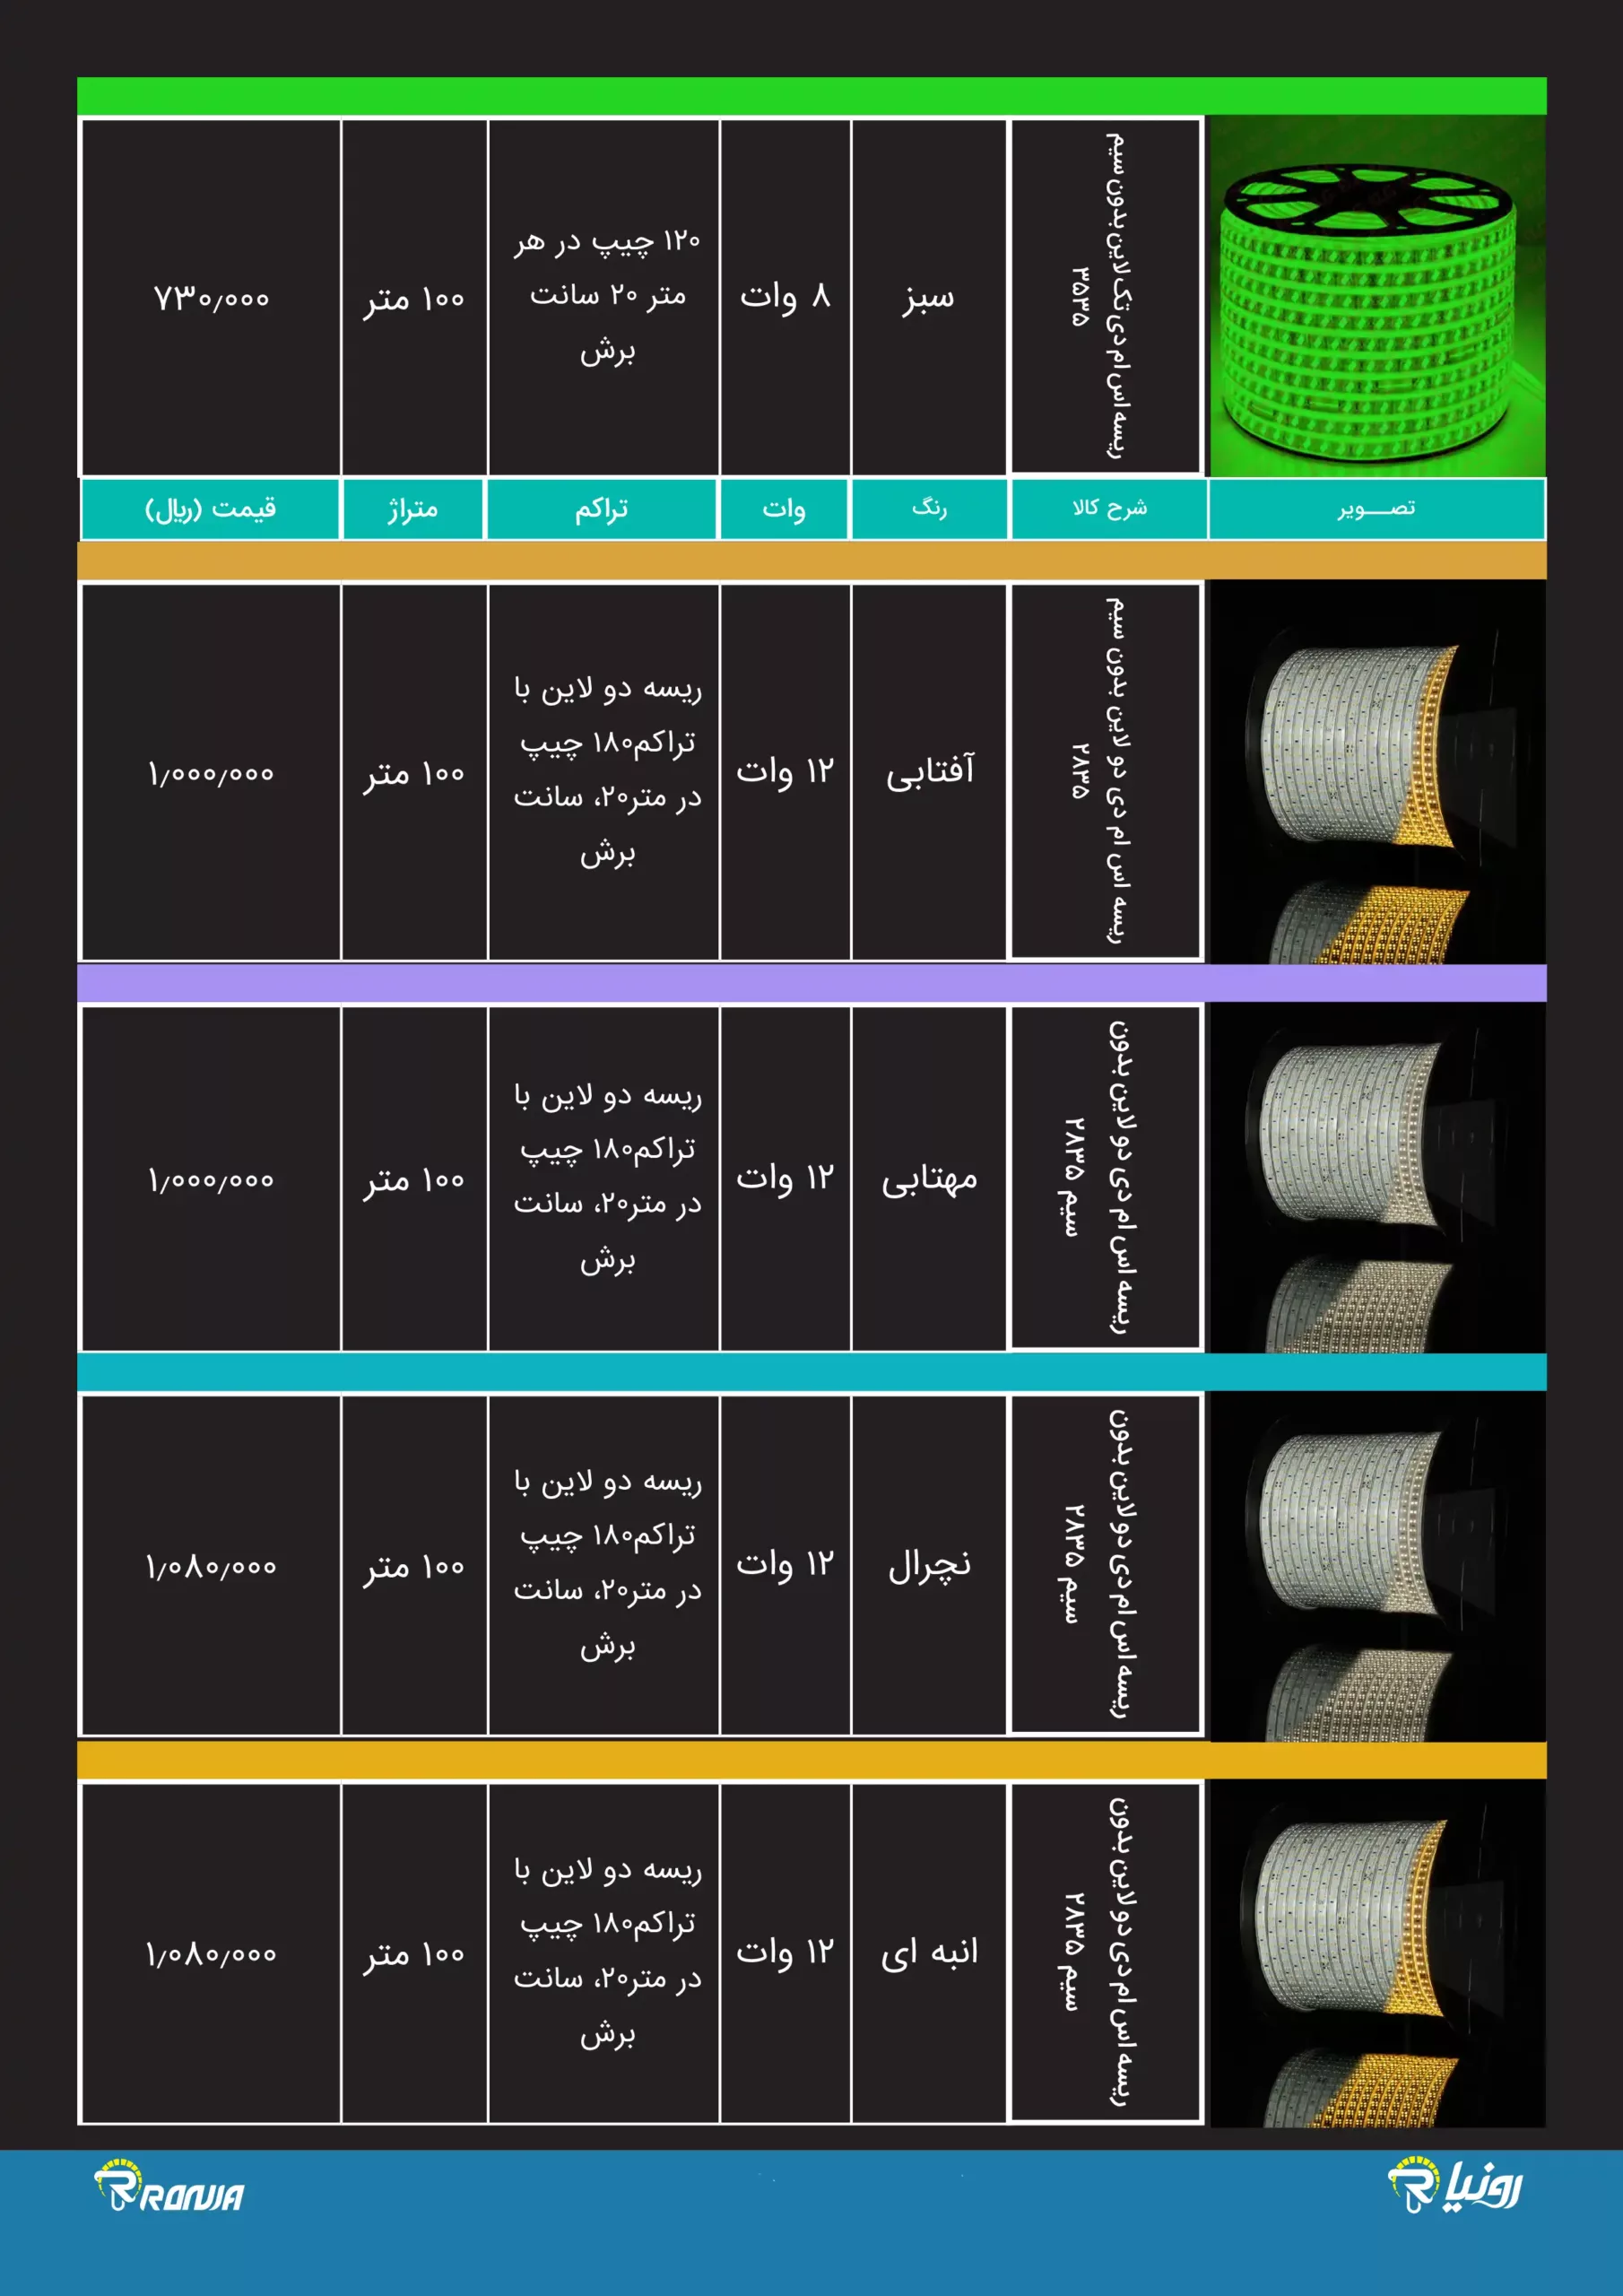 ریسه اس ام دی تک لاین بدون سیم
۳۵۳۵
سبز
۸ وات
۱۲۰ چیپ در هر
متر ۲۰ سانت
برش
۱۰۰ متر
۷۳۰٫۰۰۰
تصـــویر
شرح کالا
رنگ
وات
تراکم
متراژ
قیمت (ریال)
ریسه اس ام دی دو لاین بدون سیم
۲۸۳۵
آفتابی
۱۲ وات
ریسه دو لاین با
تراکم۱۸۰ چیپ
در متر۲۰، سانت
برش
۱۰۰ متر
۱٫۰۰۰٫۰۰۰
ریسه اس ام دی دو لاین بدون
سیم ۲۸۳۵
مهتابی
۱۲ وات
ریسه دو لاین با
تراکم۱۸۰ چیپ
در متر۲۰، سانت
برش
۱۰۰ متر
۱٫۰۰۰٫۰۰۰
ریسه اس ام دی دو لاین بدون
سیم ۲۸۳۵
نچرال
۱۲ وات
ریسه دو لاین با
تراکم۱۸۰ چیپ
در متر۲۰، سانت
برش
۱۰۰ متر
۱٫۰۸۰٫۰۰۰
ریسه اس ام دی دو لاین بدون
سیم ۲۸۳۵
انبه ای
۱۲ وات
ریسه دو لاین با
تراکم۱۸۰ چیپ
در متر۲۰، سانت
برش
۱۰۰ متر
۱٫۰۸۰٫۰۰۰
رونیا
RONIA